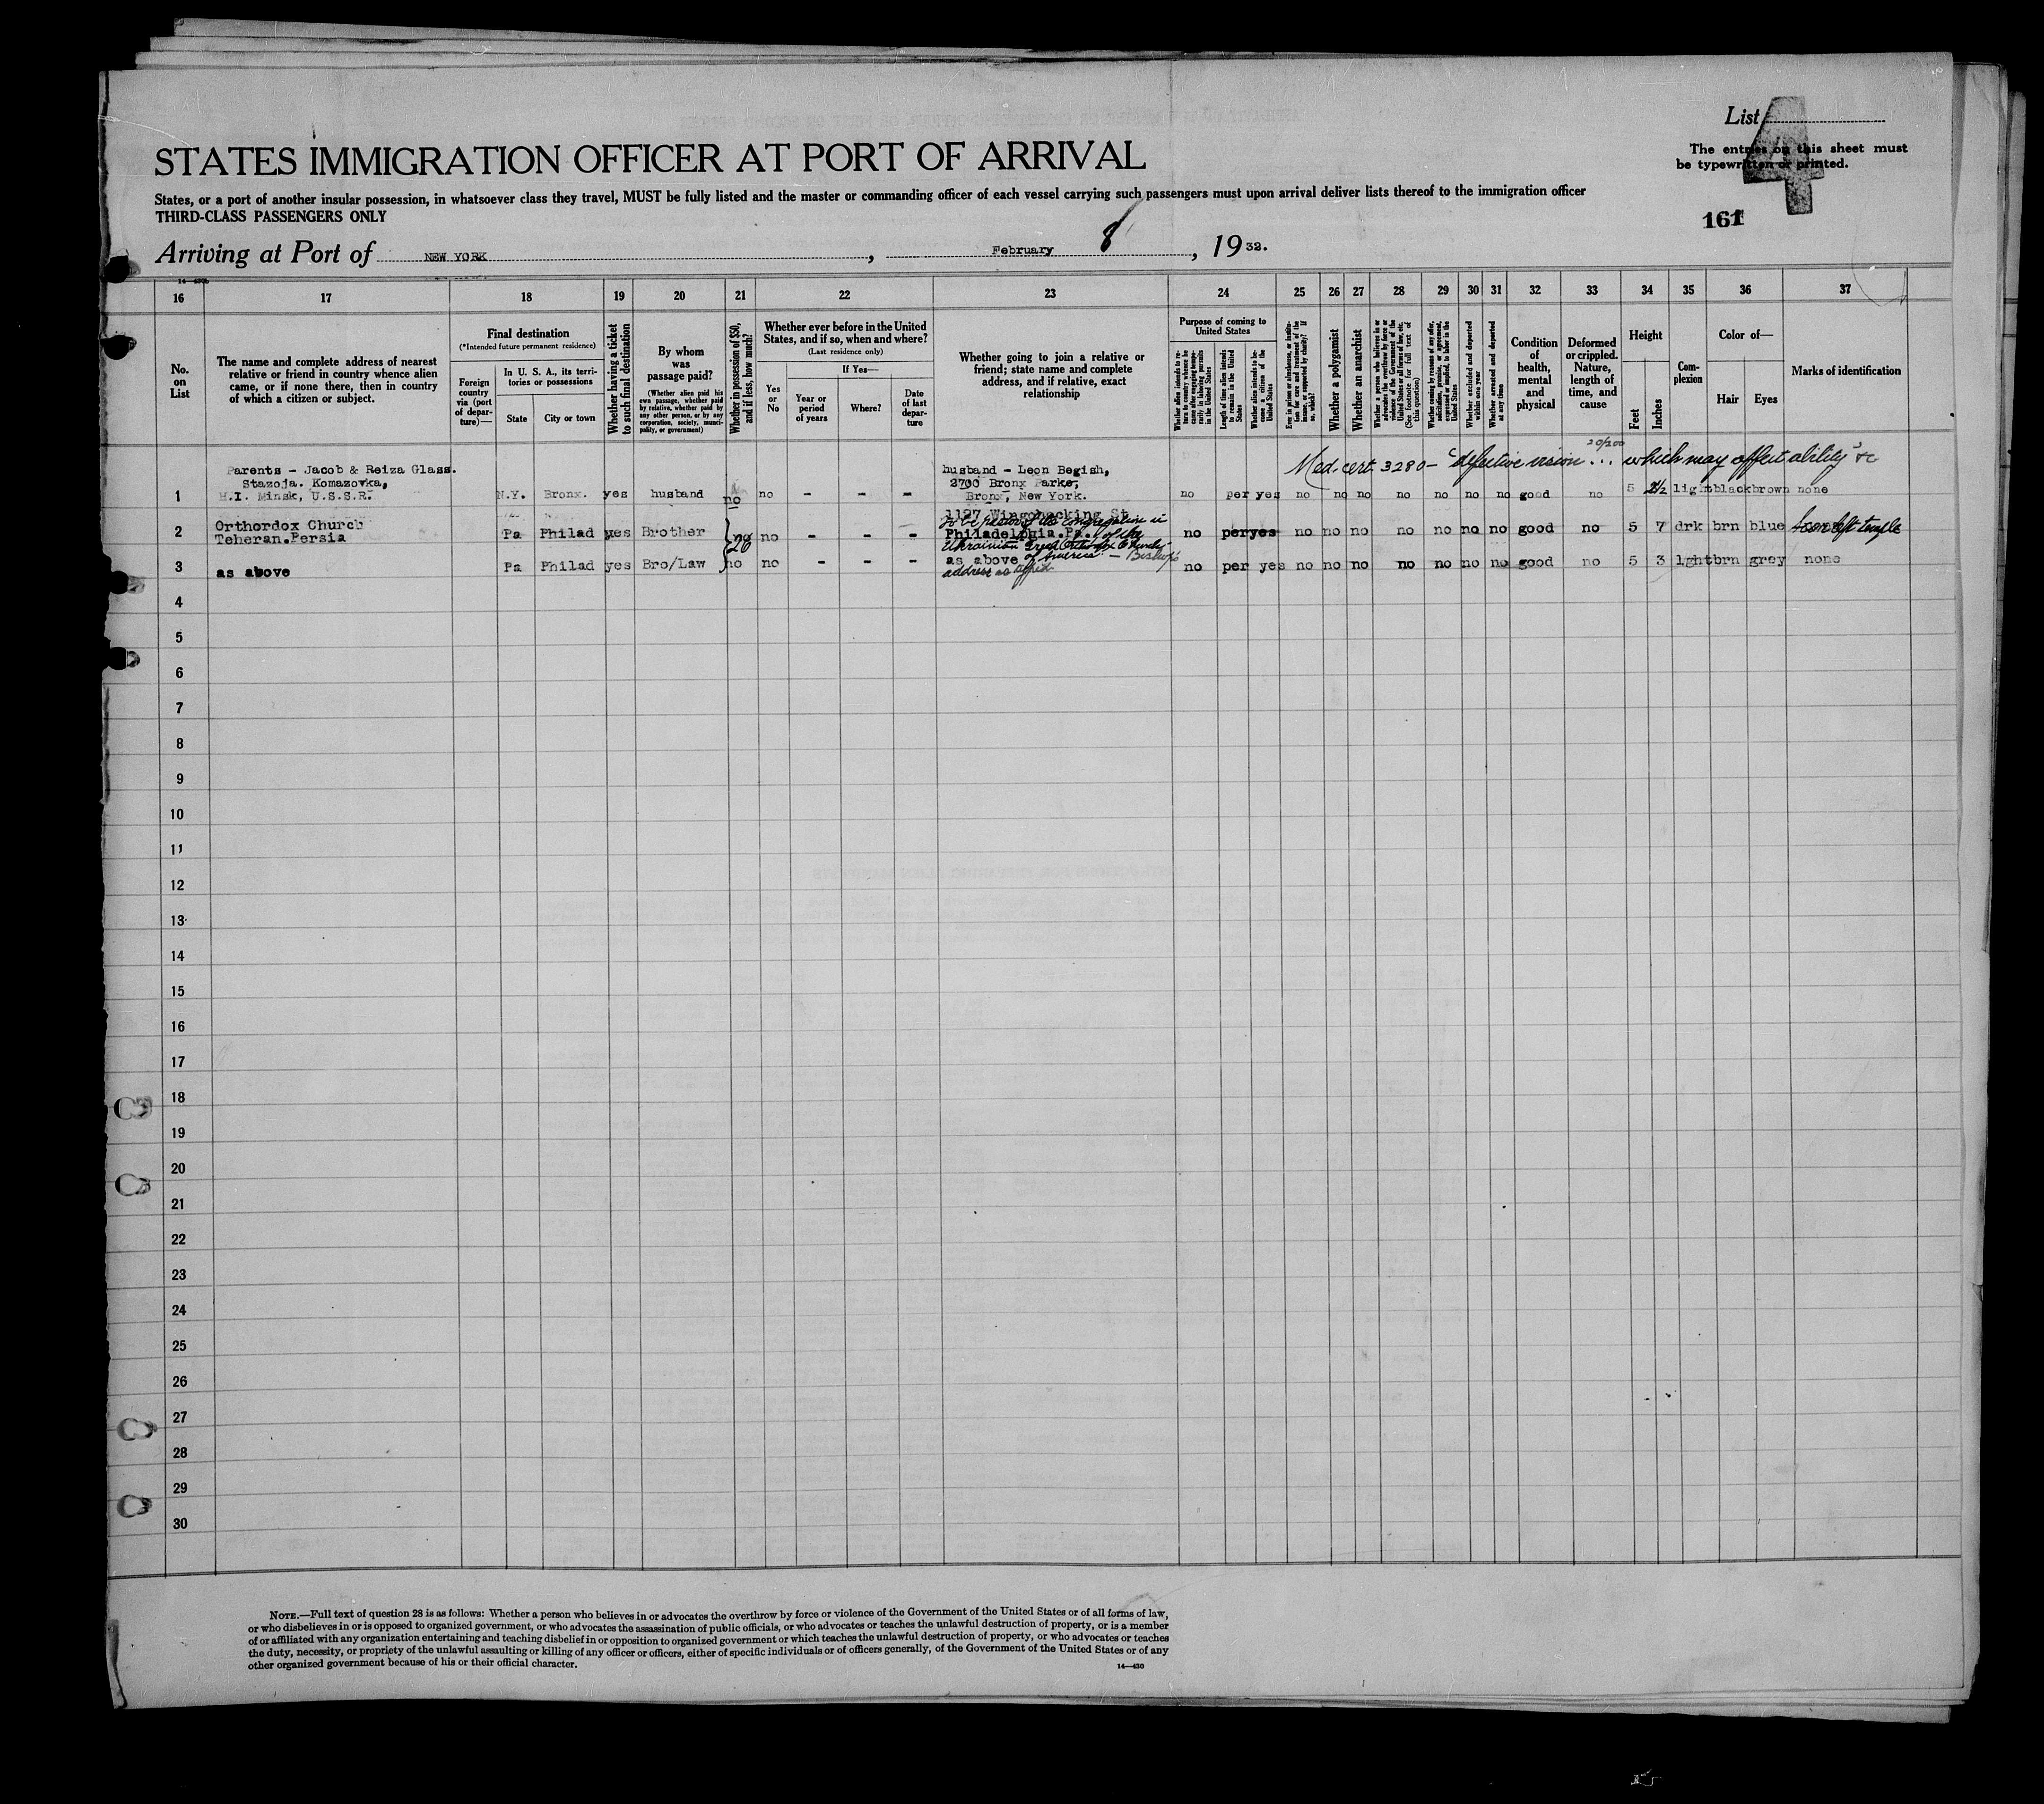 List
4
The entries on this sheet must
be typewritten or printed.
161
STATES IMMIGRATION OFFICER AT PORT OF ARRIVAL
States, or a port of another insular possession, in whatsoever class they travel, MUST be fully listed and the master or commanding officer of each vessel carrying such passengers must upon arrival deliver lists thereof to the immigration officer
THIRD-CLASS PASSENGERS ONLY
Arriving at Port of NEW YORK, February 8, 1932.
16 17 18 19 20 21 22 23 24 25 26 27 28 29 30 31 32 33 34 35 36 37
No. on List
The name and complete address of nearest
relative or friend in country whence alien
came, or if none there, then in country
of which a citizen or subject.
Final destination
(*Intended future permanent residence)
Foreign country via (port of departure)—
In U. S. A., its territories or possessions
State
City or town
Whether having a ticket to such final destination
By whom was passage paid?
(Whether alien paid his own passage, whether paid by relative, whether paid by any other person, or by any corporation, society, municipality, or government)
Whether in possession of $50, and if less, how much?
Whether ever before in the United
States, and if so, when and where?
(Last residence only)
Yes or No
If Yes—
Year or period of years
Where?
Date of last departure
Whether going to join a relative or
friend; state name and complete
address, and if relative, exact
relationship
Purpose of coming to United States
Whether alien intends to return to country whence he came after engaging temporarily in laboring pursuits in the United States
Length of time alien intends to remain in the United States
Whether alien intends to become a citizen of the United States
Ever in prison or almshouse, or institution for care and treatment of the insane, or supported by charity? If so, which?
Whether a polygamist
Whether an anarchist
Whether a person who believes in or advocates the overthrow by force or violence of the Government of the United States or all forms of law, etc. (See footnote for full text of this question)
Whether coming by reason of any offer, solicitation, promise, or agreement, expressed or implied, to labor in the United States
Whether excluded and deported within one year
Whether arrested and deported at any time
Condition of health, mental and physical
Deformed or crippled. Nature, length of time, and cause
Height
Feet
Inches
Complexion
Color of—
Hair
Eyes
Marks of identification
20/200
Med. cert. 3280 – "defective vision ... which may affect ability" &c
Parents - Jacob & Reiza Glass.
Stazoja. Komazovka,
Minsk, U.S.S.R.
husband - Leon Begish,
2700 Bronx Parke,
Bronx, New York.
1 N.Y. Bronx. yes husband no no - - - no per yes no no no no no no no good no 5 2½ light black brown none
1127 Wingohocking St
to be pastor of the congregation in
2 Orthordox Church Pa Philad yes Brother no no - - - Philadelphia.Pa. of the no per yes no no no no no no no good no 5 7 drk brn blue Scar left temple
Teheran.Persia
Ukrainian Greek Orthodox Church
26
of America - Bishop's
3 as above Pa Philad yes Bro/Law no no - - - as above no per yes no no no no no no no good no 5 3 lght brn grey none
address as
4
5
6
7
8
9
10
11
12
13
14
15
16
17
18
19
20
21
22
23
24
25
26
27
28
29
30
NOTE.—Full text of question 28 is as follows: Whether a person who believes in or advocates the overthrow by force or violence of the Government of the United States or of all forms of law,
or who disbelieves in or is opposed to organized government, or who advocates the assassination of public officials, or who advocates or teaches the unlawful destruction of property, or is a member
of or affiliated with any organization entertaining and teaching disbelief in or opposition to organized government or which teaches the unlawful destruction of property, or who advocates or teaches
the duty, necessity, or propriety of the unlawful assaulting or killing of any officer or officers, either of specific individuals or of officers generally, of the Government of the United States or of any
other organized government because of his or their official character.
14—430